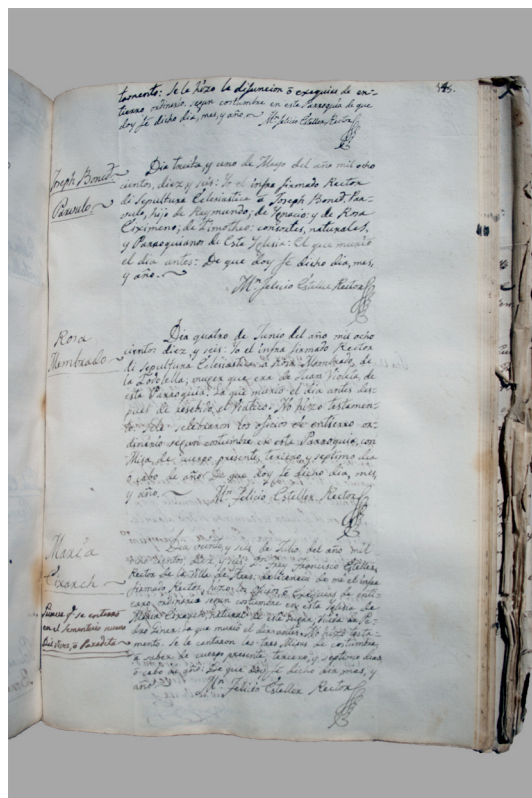 tamento: Se le hizo la difuncion ō exequies de en-
tierro ordinario, segun costumbre en esta Parroquia de que
doy fé dicho dia, mes, y año.
Mn. Felicio Esteller Rector
Joseph Boned
Parvulo
Dia treinta y uno de Mayo del año mil ocho
cientos, diez y seis: Yo el infra firmado Rector
di Sepultura Eclesiastica á Joseph Boned, Par-
vulo, hijo de Raymundo; de Ignacio; y de Rosa
Eximeno; de Timotheo: consortes, naturales,
y Parroquianos de Esta Iglesia: El que murió
el dia antes: De que doy fé dicho dia, mes,
y año.
Mn. Felicio Esteller Rector
Rosa
Membrado
Dia quatro de Junio del año mil ocho
cientos diez y seis: Yo el infra firmado Rector
di Sepultura Eclesiastica á Rosa Membrado, de
muger que era de Juan de
esta Parroquia. La que murió el dia antes des-
pues de resebido el Viatico: No hizo testamen-
to: celebraron los oficios de entierro or-
dinario segun costumbre de esta Parroquia, con
Misa de cuerpo presente, tercero, y septimo dia
o cabo de año: De que doy fé dicho dia, mes,
y año.
Mn. Felicio Esteller Rector
Maria
Exarch
Dia veinte y seis de Julio, del año mil
ocho cientos, diez y seis: Frey Francisco Esteller,
Rector de la Villa de de mi el infra
firmado Rector, hizo exequias de
ordinario segun costumbre en esta Iglesia de
Maria Exarch, natural de
La que murió el dia antes: No hizo testa-
mento. Se la cantaron las tres Misas de costumbre,
a saber de cuerpo presente, tercero, y septimo dia
ō cabo de año: De que doy fé dicho dia, mes, y
año.
Mn. Felicio Esteller Rector
se enterró
en el Sementerio nuevo